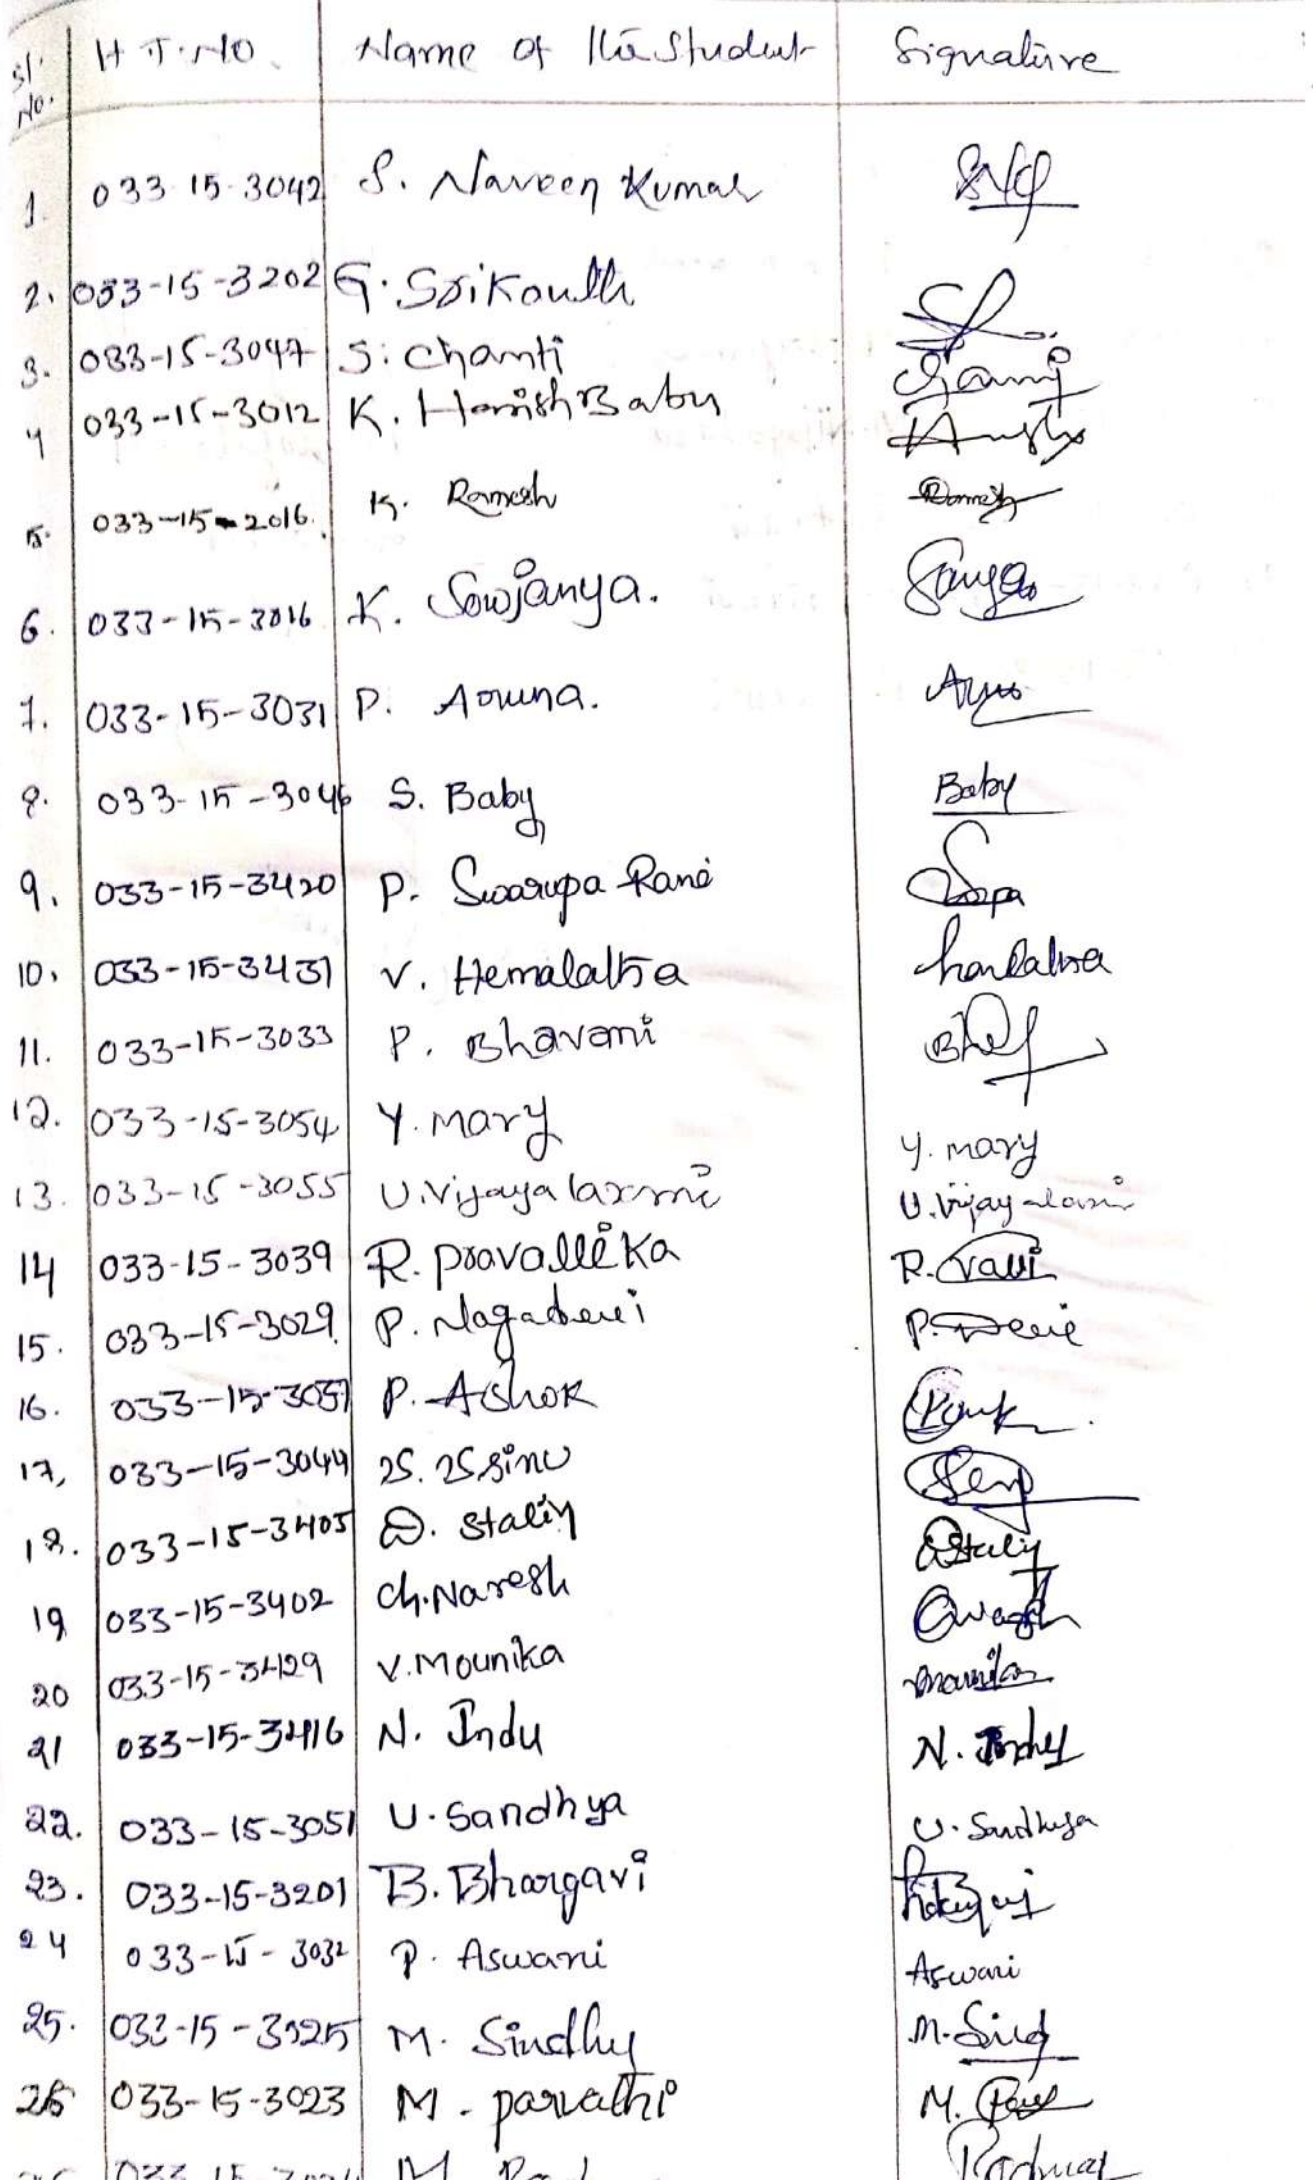 Sl. No. H.T.NO. Name of the Student Signature
1. 033-15-3042 S. Naveen Kumar
2. 033-15-3202 G. Srikanth
3. 033-15-3047 S. Chanti
4 033-15-3012 K. Harish Babu
5. 033-15-2016. K. Ramesh Ramesh
6. 033-15-3016 K. Sowjanya.
7. 033-15-3031 P. Aruna.
8. 033-15-3046 S. Baby Baby
9. 033-15-3420 P. Swarupa Rani
10. 033-15-3431 V. Hemalatha
11. 033-15-3033 P. Bhavani
12. 033-15-3054 Y. Mary Y. mary
13. 033-15-3055 U.Vijaya laxmi
14 033-15-3039 R. Pravallika R. valli
15. 033-15-3029. P. Nagadevi P. Devi
16. 033-15-3037 P. Ashok
17, 033-15-3044 S. Ssinu
18. 033-15-3405 D. Staliy
19 033-15-3402 Ch.Naresh
20 033-15-3429 V.Mounika
21 033-15-3416 N. Indu N.
22. 033-15-3051 U. Sandhya U. Sandhya
23. 033-15-3201 B. Bhargavi
24 033-15-3032 P. Aswani Aswani
25. 033-15-3025 M. Sindhu M.
26 033-15-3023 M. parvathi M.